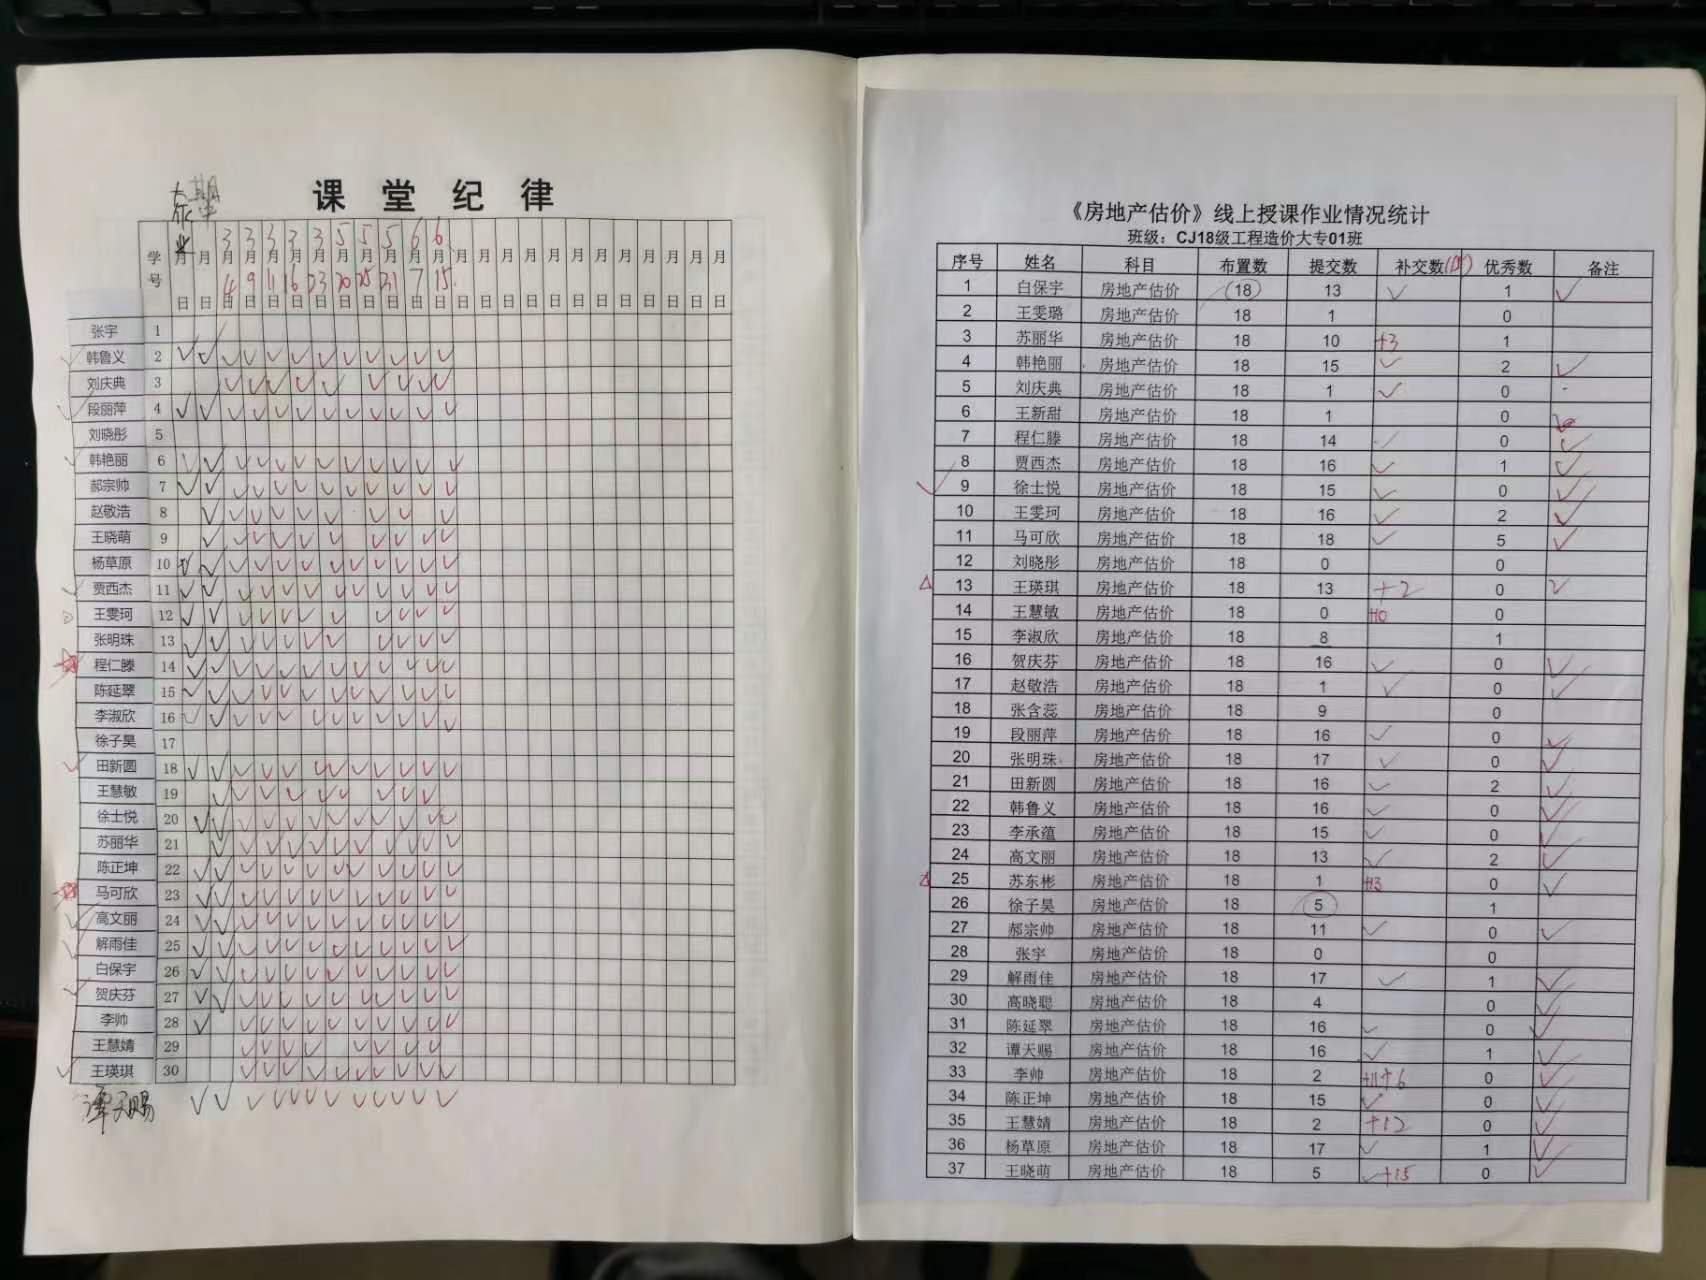 课堂纪律
学号 月 月 3月 3月 3月 3月 3月 5月 5月 5月 6月 6月 月 月 月 月 月 月 月 月 月 月 月
日 日 4日 9日 11日 16日 23日 20日 25日 31日 7日 15日 日 日 日 日 日 日 日 日 日 日 日
张宇 1
韩鲁义 2
刘庆典 3
段丽萍 4
刘晓彤 5
韩艳丽 6
郝宗帅 7
赵敬浩 8
王晓萌 9
杨草原 10
贾西杰 11
王雯珂 12
张明珠 13
程仁滕 14
陈延翠 15
李淑欣 16
徐子昊 17
田新圆 18
王慧敏 19
徐士悦 20
苏丽华 21
陈正坤 22
马可欣 23
高文丽 24
解雨佳 25
白保宇 26
贺庆芬 27
李帅 28
王慧婧 29
王瑛琪 30
谭天赐
《房地产估价》线上授课作业情况统计
班级：CJ18级工程造价大专01班
序号 姓名 科目 布置数 提交数 补交数 优秀数 备注
1 白保宇 房地产估价 18 13 1
2 王雯璐 房地产估价 18 1 0
3 苏丽华 房地产估价 18 10 +3 1
4 韩艳丽 房地产估价 18 15 2
5 刘庆典 房地产估价 18 1 0
6 王新甜 房地产估价 18 1 0
7 程仁滕 房地产估价 18 14 0
8 贾西杰 房地产估价 18 16 1
9 徐士悦 房地产估价 18 15 0
10 王雯珂 房地产估价 18 16 2
11 马可欣 房地产估价 18 18 5
12 刘晓彤 房地产估价 18 0 0
13 王瑛琪 房地产估价 18 13 +2 0
14 王慧敏 房地产估价 18 0 +10 0
15 李淑欣 房地产估价 18 8 1
16 贺庆芬 房地产估价 18 16 0
17 赵敬浩 房地产估价 18 1 0
18 张含蕊 房地产估价 18 9 0
19 段丽萍 房地产估价 18 16 0
20 张明珠 房地产估价 18 17 0
21 田新圆 房地产估价 18 16 2
22 韩鲁义 房地产估价 18 16 0
23 李承蕴 房地产估价 18 15 0
24 高文丽 房地产估价 18 13 2
25 苏东彬 房地产估价 18 1 +13 0
26 徐子昊 房地产估价 18 5 1
27 郝宗帅 房地产估价 18 11 0
28 张宇 房地产估价 18 0 0
29 解雨佳 房地产估价 18 17 1
30 高晓聪 房地产估价 18 4 0
31 陈延翠 房地产估价 18 16 0
32 谭天赐 房地产估价 18 16 1
33 李帅 房地产估价 18 2 +11+6 0
34 陈正坤 房地产估价 18 15 0
35 王慧婧 房地产估价 18 2 +12 0
36 杨草原 房地产估价 18 17 1
37 王晓萌 房地产估价 18 5 +15 0